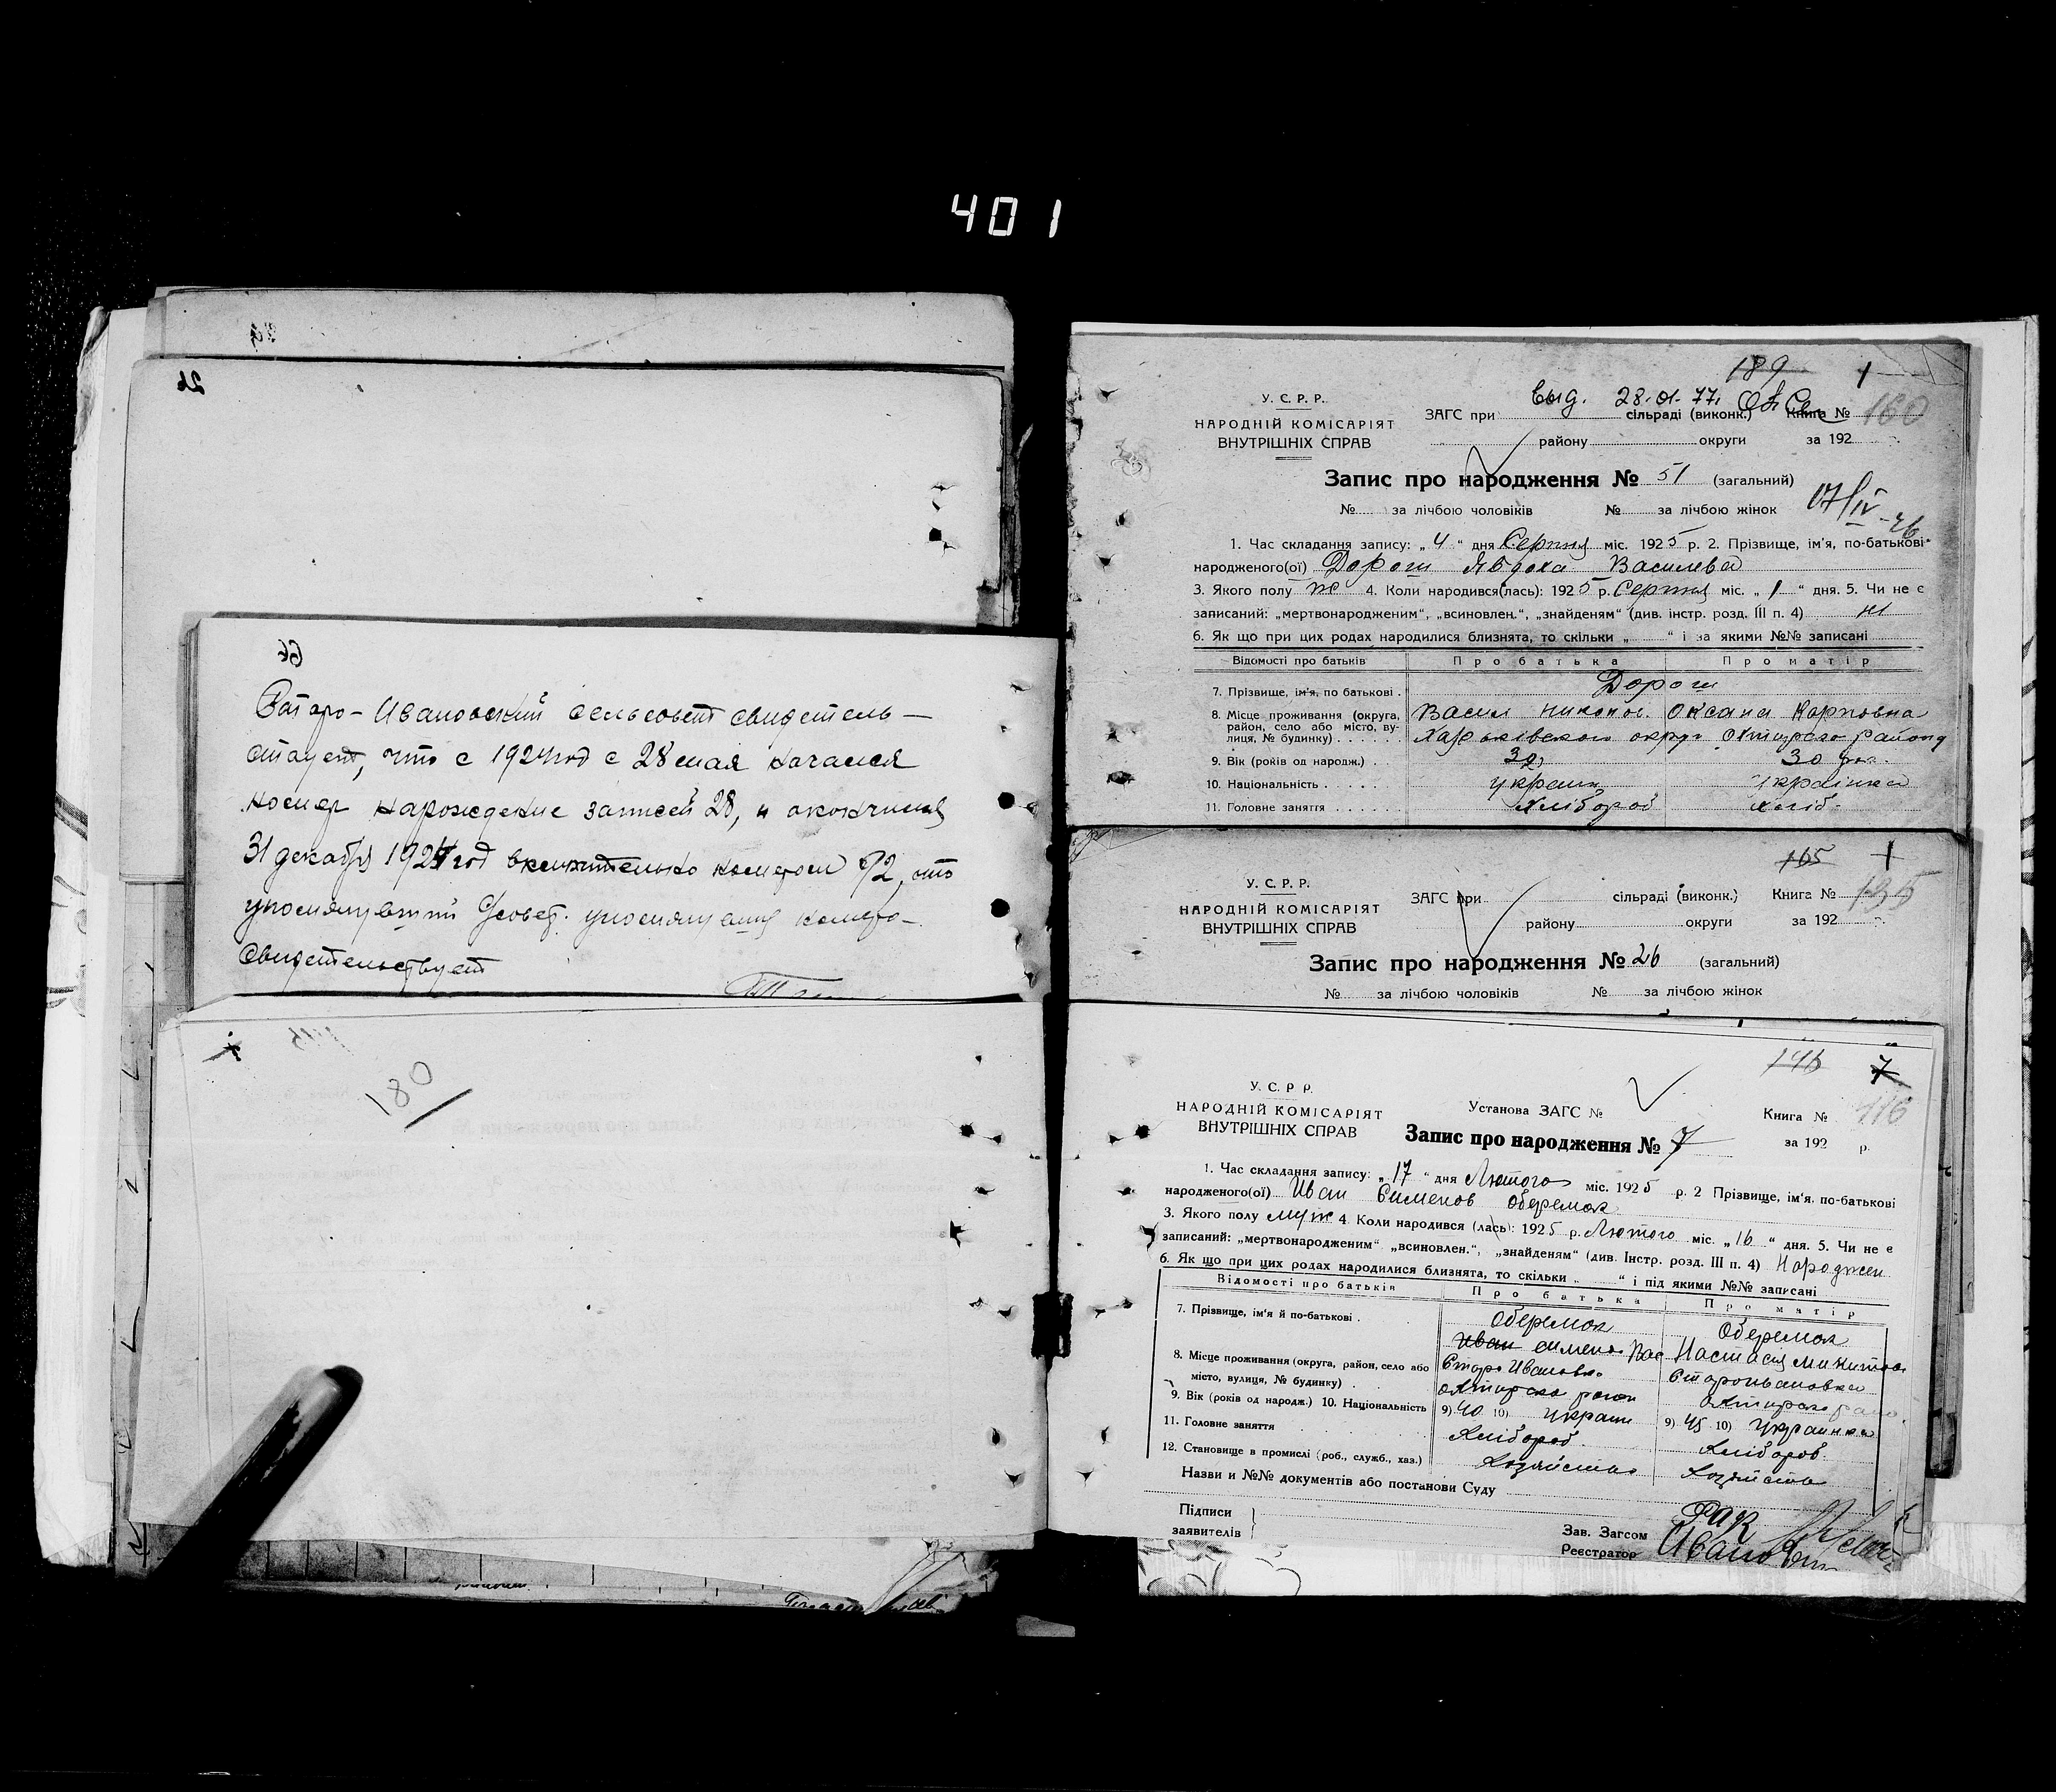 401
26
66
Старо-Ивановский сельсовет свидетель-
ствует, что с 1924 год с 28 мая начался
номер нарождение записей 28, и окончился
31 декабря 1924 год включительно номером 92, что
упомянувший упомянущия номера
свидетельствует
180
189
1
выд. 28.01.77.
У. С. Р. Р.
НАРОДНІЙ КОМІСАРІЯТ
ВНУТРІШНІХ СПРАВ
ЗАГС при сільраді (виконк.) Книга № 160
району округи за 192
Запис про народження № 51 (загальний)
№ за лічбою чоловіків № за лічбою жінок
17/IV-46
1. Час складання запису: „4“ дня Серпня міс. 1925 р. 2. Прізвище, ім'я, по-батькові
народженого(ої) Дорош Явдоха Василева
3. Якого полу ж 4. Коли народився(лась): 1925 р. Серпня міс. „1“ дня. 5. Чи не є
записаний: „мертвонародженим“, „всиновлен.“, „знайденям“ (див. інстр. розд. III п. 4) ні
6. Як що при цих родах народилися близнята, то скільки „ “ і за якими №№ записані
Відомості про батьків Про батька Про матір
7. Прізвище, ім'я, по батькові . Дорош
8. Місце проживання (округа, Васил Никонов. Оксана Карповна
район, село або місто, ву-
лиця, № будинку) . . . . . . Харьківского округ Охтирско району
9. Вік (років од народж.) . . 30 30
10. Національність . . . . . . україн українка
11. Головне заняття . . . . . . хлібороб хліб-
165
1
У. С. Р. Р.
НАРОДНІЙ КОМІСАРІЯТ
ВНУТРІШНІХ СПРАВ
ЗАГС при сільраді (виконк.) Книга № 135
району округи за 192
Запис про народження № 26 (загальний)
№ за лічбою чоловіків № за лічбою жінок
146
7
У. С. Р. Р.
НАРОДНІЙ КОМІСАРІЯТ
ВНУТРІШНІХ СПРАВ
Установа ЗАГС № Книга № 116
Запис про народження № 7 за 192 р.
1. Час складання запису: „17“ дня Лютого міс. 1925 р. 2 Прізвище, ім'я, по-батькові
народженого(ої) Иван Сименов Оберемок
3. Якого полу муж 4. Коли народився (лась): 1925 р. Лютого міс. „16“ дня. 5. Чи не є
записаний: „мертвонародженим“ „всиновлен.“, „знайденям“ (див. Інстр. розд. III п. 4) Народжен
6. Як що при цих родах народилися близнята, то скільки „ “ і під якими №№ записані
Відомості про батьків Про батька Про матір
7. Прізвище, ім'я й по-батькові . Оберемок Оберемок
Иван симено Вас Настасія Микитов
8. Місце проживання (округа, район, село або Старо Ивановко Староивановка
місто, вулиця, № будинку) . Охтирско район Охтирско райо.
9. Вік (років од народж.) 10. Національність 9) 40 10) україн 9) 45 10) украинка
11. Головне заняття хлібороб. хлібороб
12. Становище в промислі (роб., служб., хаз.) хозяйства хозяйства
Назви и №№ документів або постанови Суду
Підписи
заявителів
Зав. Загсом Рак
Реєстратор